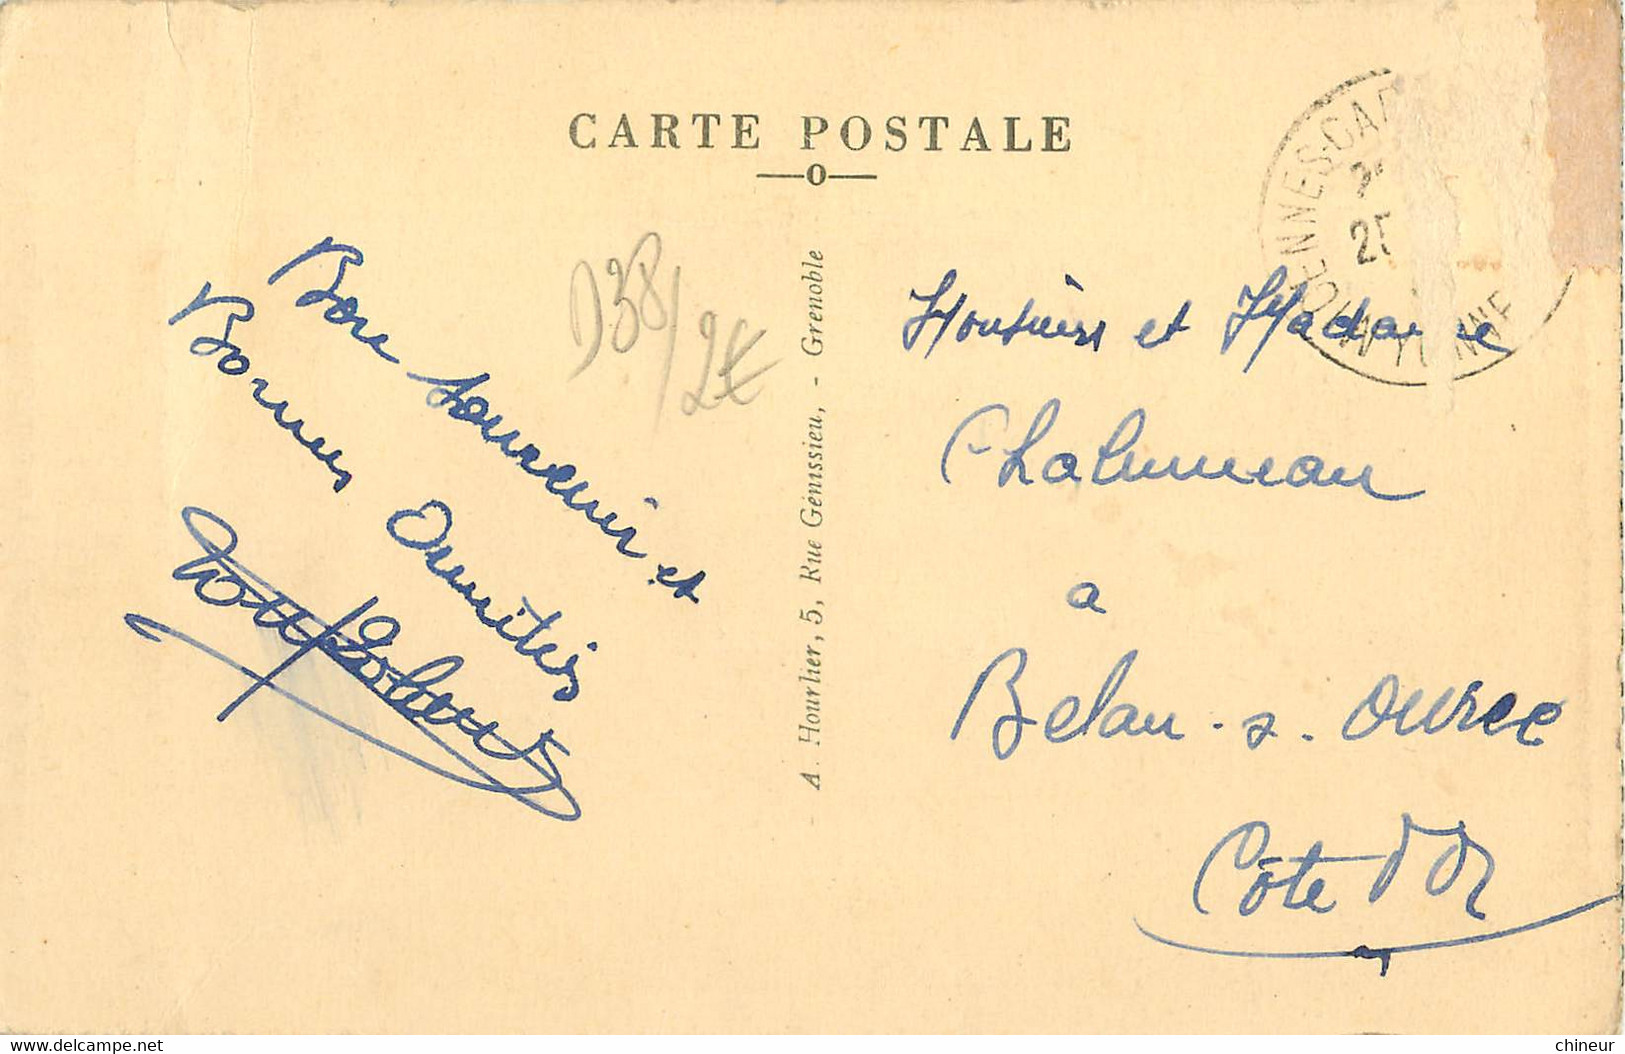 CARTE POSTALE
—o—
D38/2€
Bon souvenir et
Bonnes Amitiés
A. Hourlier, 5, Rue Génissieu, - Grenoble
25
Monsieur et Madame
Chalumeau
a
Belan-s-Ource
Côte d'Or
delcampe.net
chineur